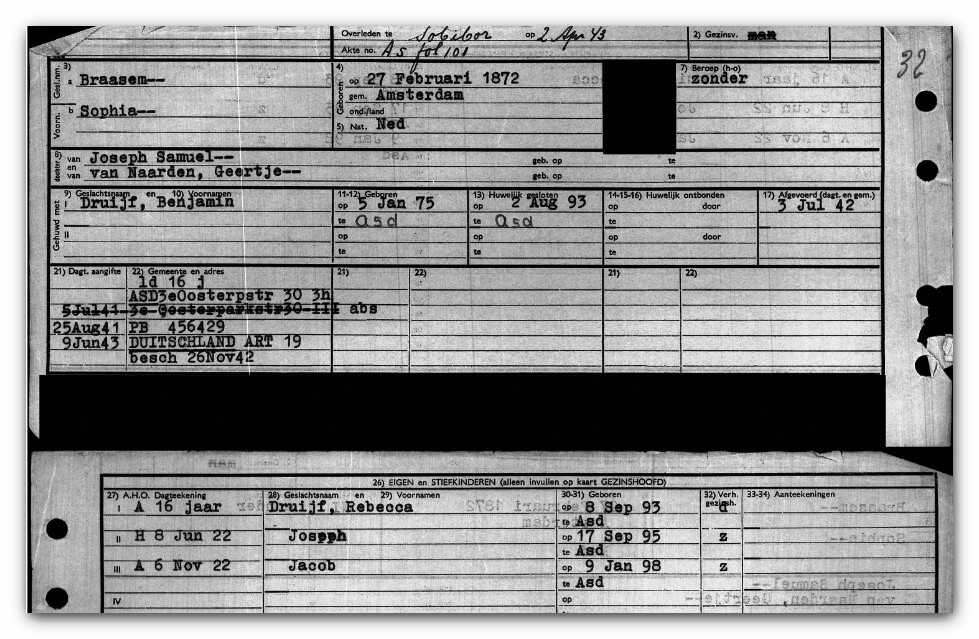 Overleden te Sobibor op 2 Apr 43 2) Gezinsv. man
Akte no. A5 fol 101
32
3) 4) 7) Beroep (h-o)
Gesl.nm. a Braasem-- Geboren op 27 Februari 1872 zonder
gem. Amsterdam
Voorn. b Sophia-- ond./land
5) Nat. Ned
dochter 8) van Joseph Samuel-- geb. op te
en
van van Naarden, Geertje-- geb. op te
9) Geslachtsnaam en 10) Voornamen 11-12) Geboren 13) Huwelijk gesloten 14-15-16) Huwelijk ontbonden 17) Afgevoerd (dagt. en gem.)
Gehuwd met I Druijf, Benjamin op 5 Jan 75 op 2 Aug 93 op door 3 Jul 42
te asd te asd te
II op op op door
te te te
21) Dagt. aangifte 22) Gemeente en adres 21) 22) 21) 22)
ld 16 j
ASD3eOosterpstr 30 3h
5Jul41 3e Oosterparkstr30-III abs
25Aug41 PB 456429
9Jun43 DUITSCHLAND ART 19
besch 26Nov42
man
26) EIGEN en STIEFKINDEREN (alleen invullen op kaart GEZINSHOOFD)
27) A.H.O. Dagteekening 28) Geslachtsnaam en 29) Voornamen 30-31) Geboren 32) Verh. gezinsh. 33-34) Aanteekeningen
I A 16 jaar Druijf, Rebecca op 8 Sep 93 d
te Asd
II H 8 Jun 22 Joseph op 17 Sep 95 z
te Asd
III A 6 Nov 22 Jacob op 9 Jan 98 z
te Asd
IV op